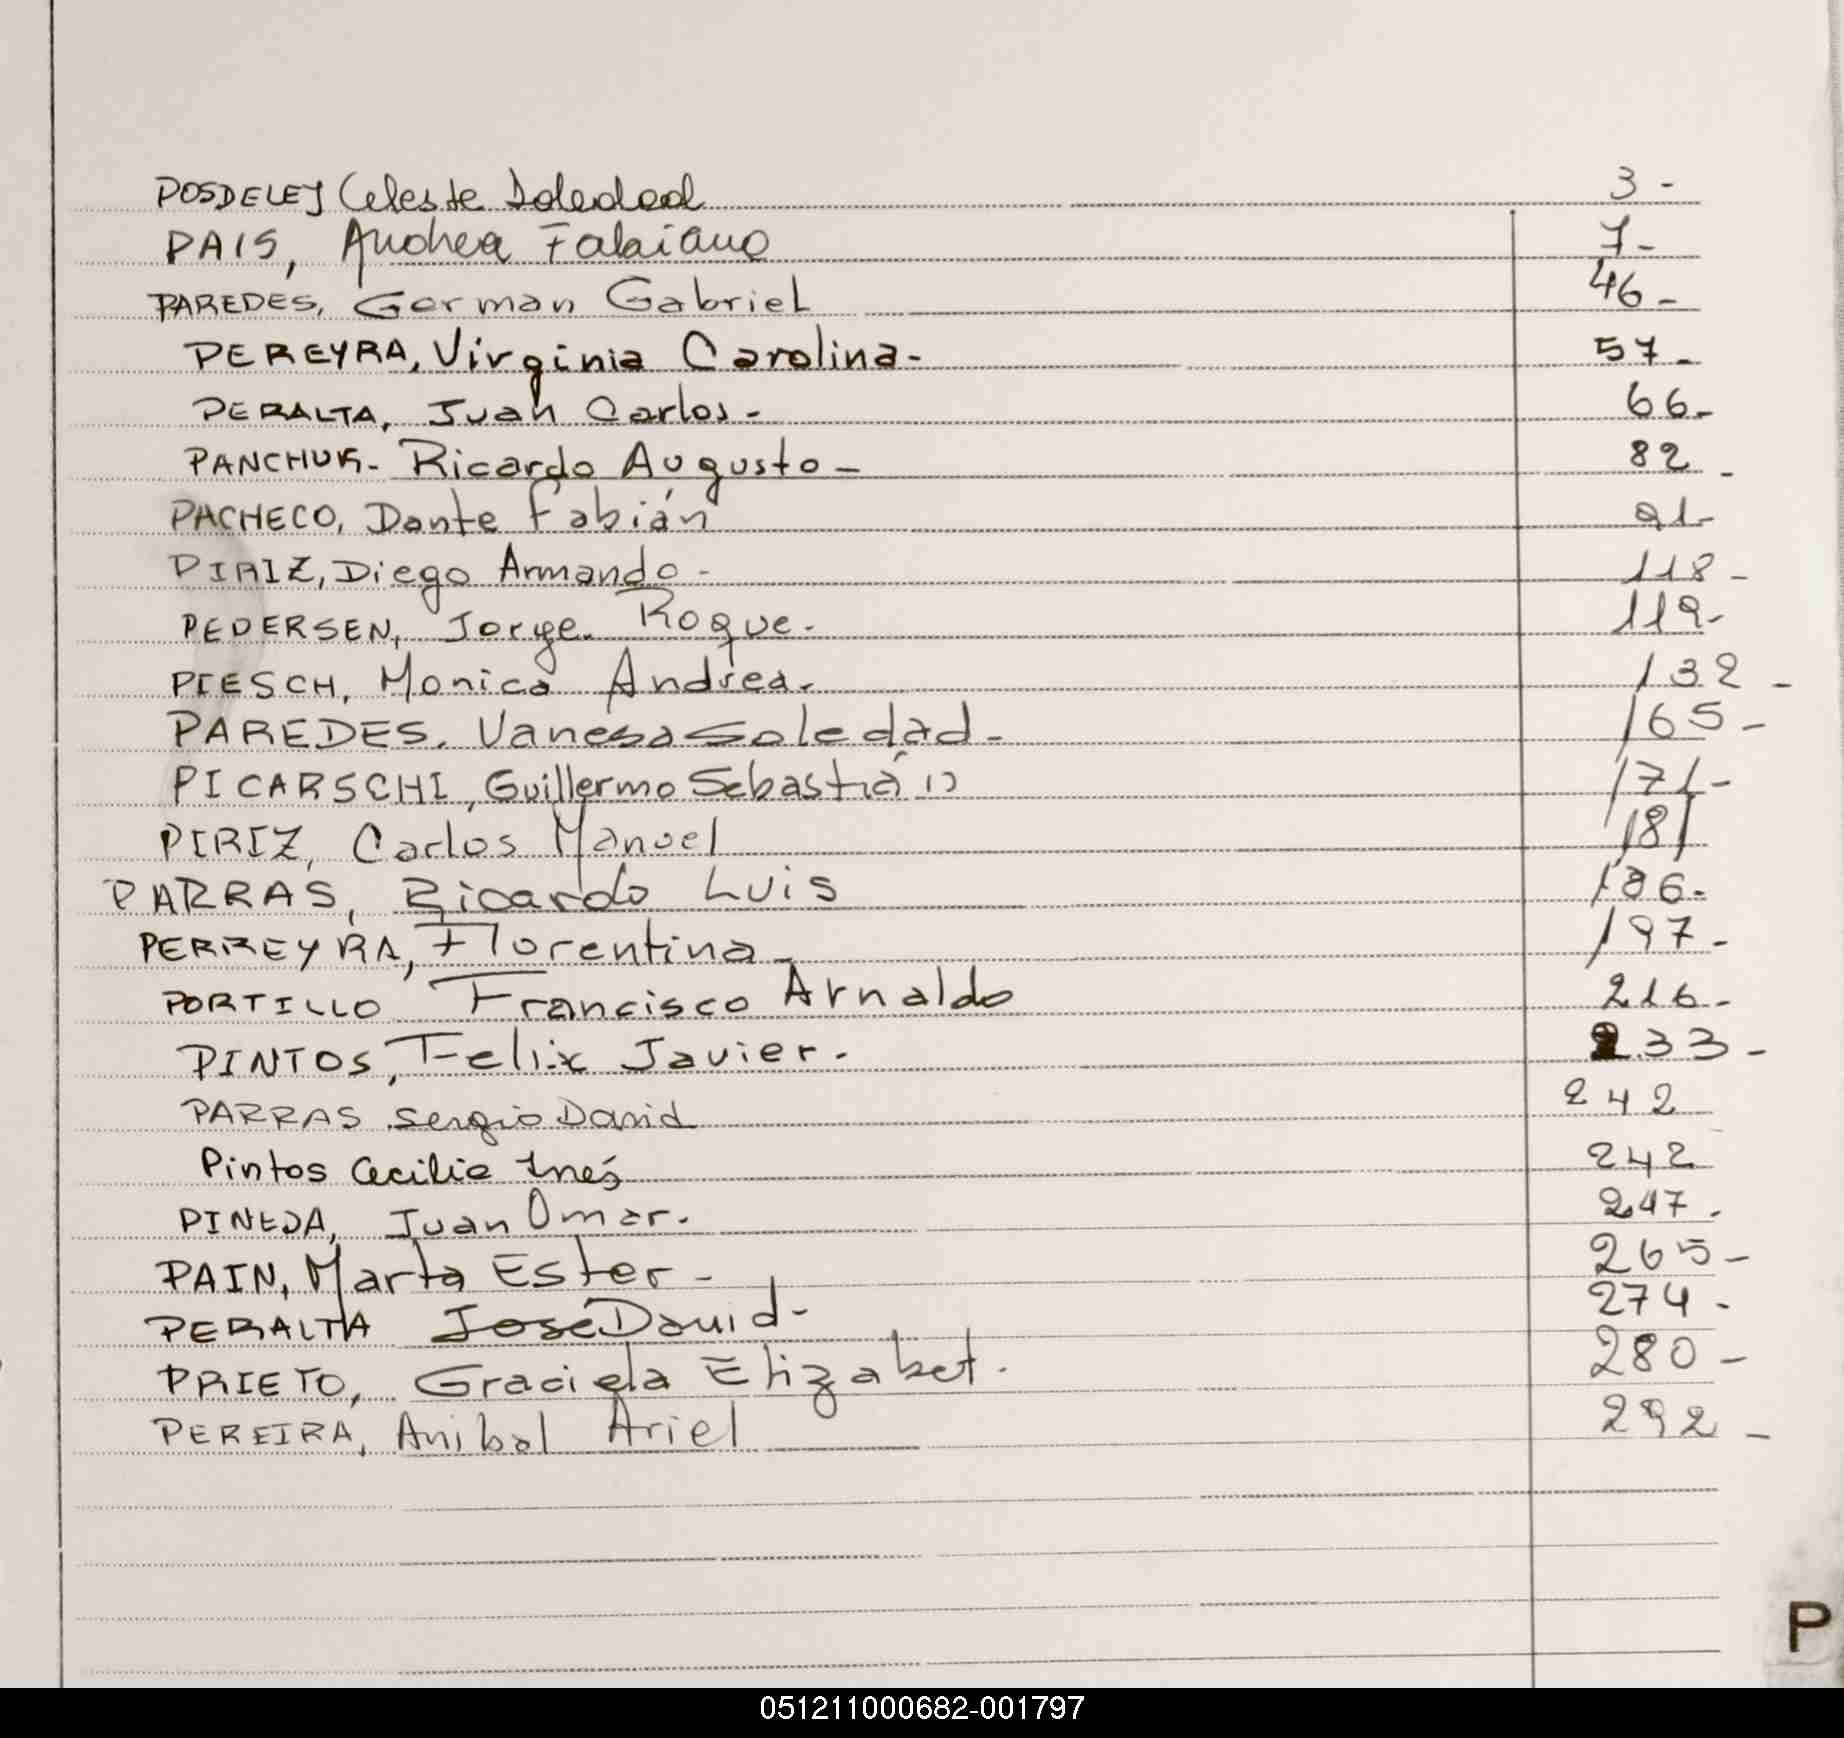 POSDELEY Celeste Soledad 3 -
PAIS, Andrea Fabiana 7 -
PAREDES, German Gabriel 46 -
PEREYRA, Virginia Carolina - 57 -
PERALTA, Juan Carlos - 66 -
PANCHUK - Ricardo Augusto - 82 -
PACHECO, Dante Fabián 91 -
PIRIZ, Diego Armando - 118 -
PEDERSEN, Jorge Roque - 119 -
PIESCH, Monica Andrea - 132 -
PAREDES, Vanesa Soledad - 165 -
PICARSCHI, Guillermo Sebastián 171 -
PIRIZ, Carlos Manuel 181
PARRAS, Ricardo Luis 186 -
PERREYRA, Florentina - 197 -
PORTILLO Francisco Arnaldo 216 -
PINTOS, Felix Javier - 233 -
PARRAS Sergio David 242
Pintos Cecilia Inés 242
PINEDA, Juan Omar - 247 -
PAIN, Marta Ester - 265 -
PERALTA José David - 274 -
PRIETO, Graciela Elizabet - 280 -
PEREIRA, Anibal Ariel 292 -
P
051211000682-001797